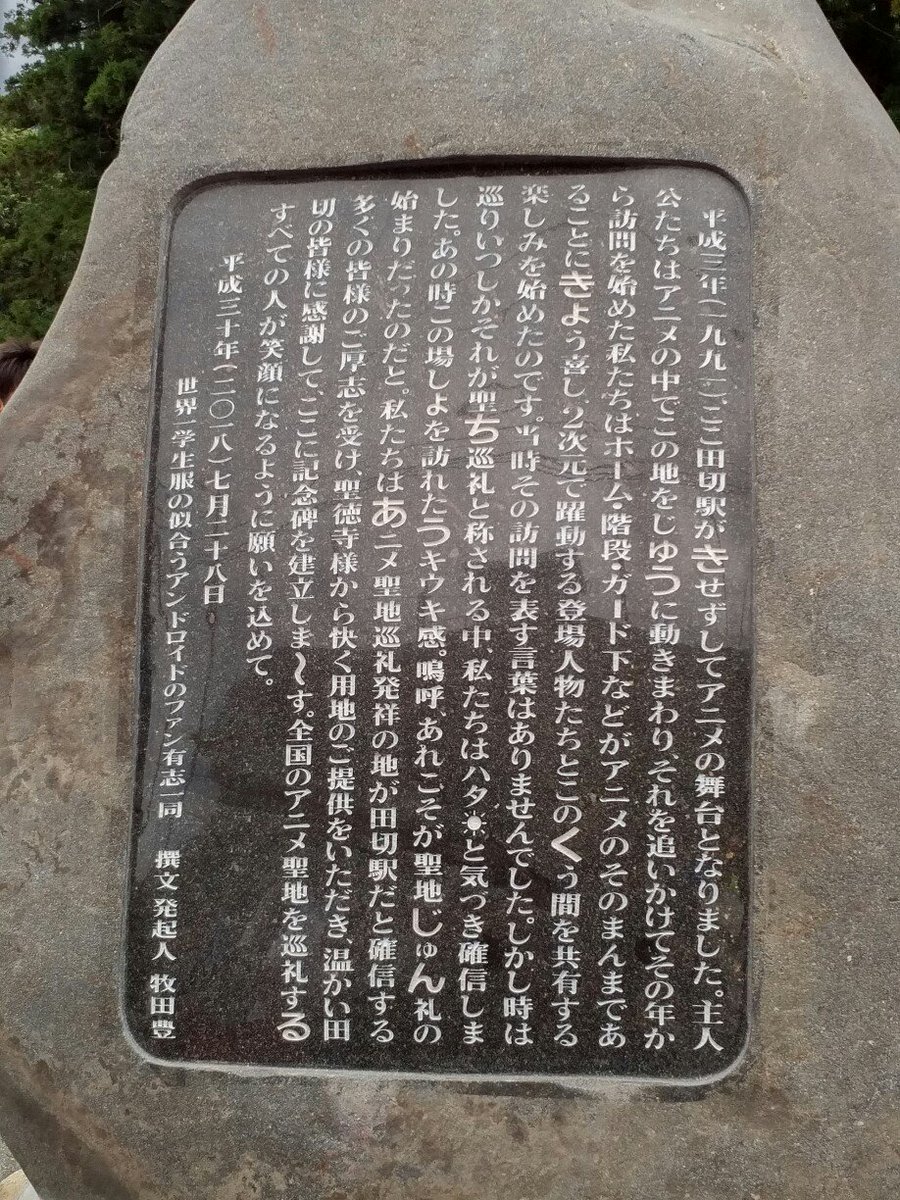 平成三年(一九九一)、ここ田切駅がきせずしてアニメの舞台となりました。主人
公たちはアニメの中でこの地をじゅうに動きまわり、それを追いかけてその年か
ら訪問を始めた私たちはホーム・階段・ガード下などがアニメのそのまんまであ
ることにきょう喜し、2次元で躍動する登場人物たちとこのくう間を共有する
楽しみを始めたのです。当時その訪問を表す言葉はありませんでした。しかし時は
巡りいつしかそれが聖ち巡礼と称される中、私たちはハタ☀と気づき確信しま
した。あの時この場しょを訪れたうキウキ感。嗚呼、あれこそが聖地じゅん礼の
始まりだったのだと。私たちはあニメ聖地巡礼発祥の地が田切駅だと確信する
多くの皆様のご厚志を受け、聖徳寺様から快く用地のご提供をいただき、温かい田
切の皆様に感謝して、ここに記念碑を建立しま〜す。全国のアニメ聖地を巡礼する
すべての人が笑顔になるように願いを込めて。
平成三十年(二〇一八)七月二十八日
世界一学生服の似合うアンドロイドのファン有志一同 撰文 発起人 牧田豊